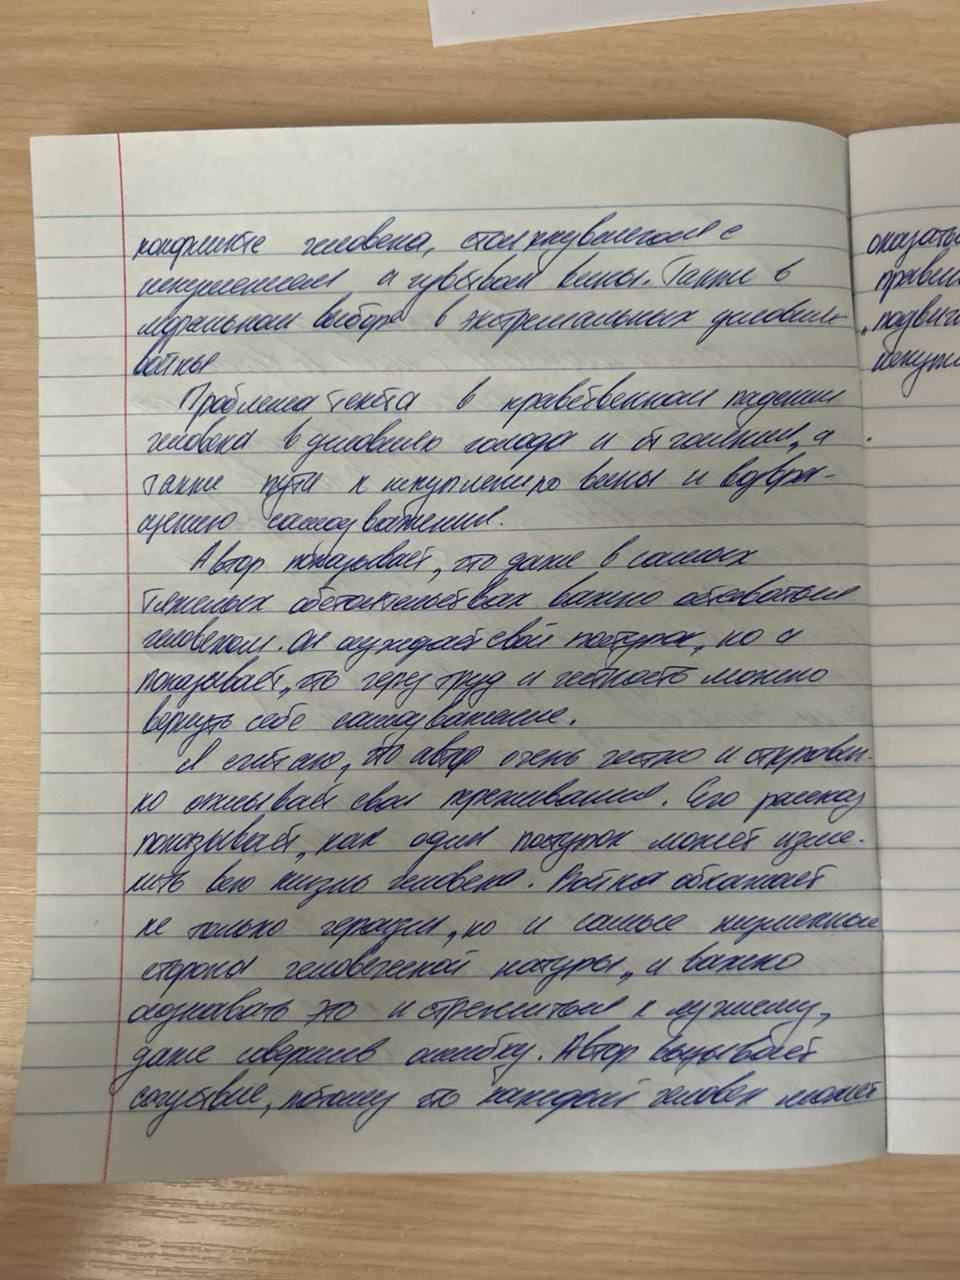 конфликте человека, столкнувшегося с
искушением и чувством вины. Также в
моральном выборе в экстремальных условиях
войны
Проблема текста в нравственном падении
человека в условиях голода и отчаяния, а
также пути к искуплению вины и возвра-
щению самоуважения.
Автор показывает, что даже в самых
тяжелых обстоятельствах важно оставаться
человеком. Он осуждает свой поступок, но и
показывает, что через труд и честность можно
вернуть себе самоуважение.
Я считаю, что автор очень честно и откровен-
но описывает свои переживания. Его рассказ
показывает, как один поступок может изме-
нить всю жизнь человека. Война обнажает
не только героизм, но и самые низменные
стороны человеческой натуры, и важно
осознавать это и стремиться к лучшему,
даже совершив ошибку. Автор вызывает
сочувствие, потому что каждый человек может
оказать
прави
"подвиг
искуш